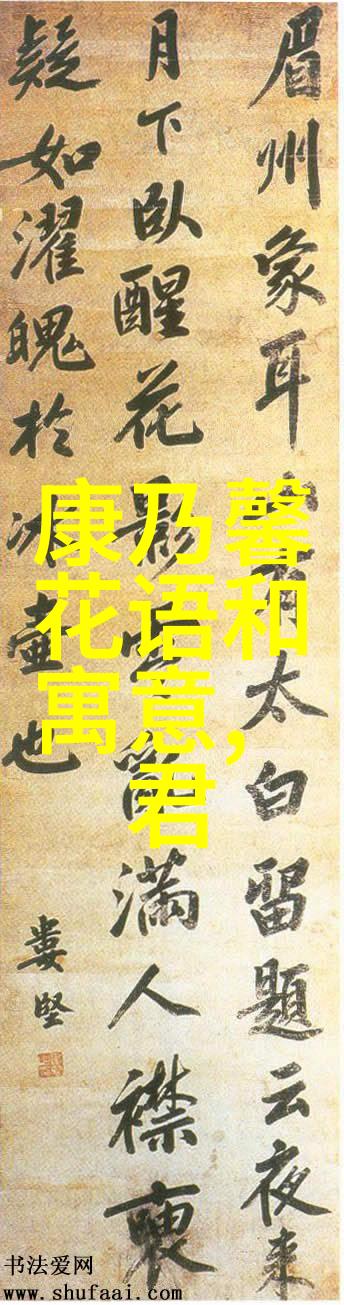 眉州象耳有太白留題云夜來
月下臥醒花影亂滿人襟
疑如濯魄於冰壺也
婁堅
康乃馨
花语和
寓意,
君
书法爱网
www.shufaai.com